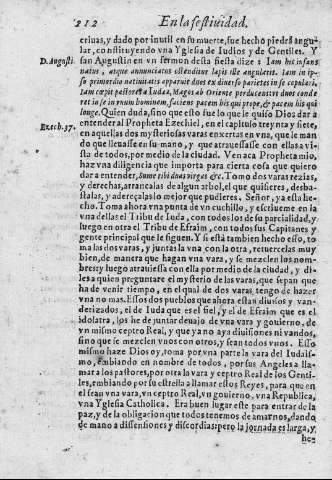 212 En la festiuidad,
criuas, y dado por inutil en su muerte, fue hecho piedra angular,
constituyendo vna Yglesia de Iudios y de Gentiles. Y
D. Augusti. san Augustin en vn sermon desta fiesta dize: Iam hic infans
natus, atque annunciatus ostenditur lapis ille angularis. Iam in ipso
primordio natiuitatis apparuit duos ex diuerso parietes in se copulari.
Iam cœpit pastores à Iudea, Magos ab Oriente perducens vt duos conderet
in se in vnum hominem, faciens pacem his qui prope, & pacem his qui
longe. Quien duda, sino que esto fue lo que quiso Dios dar a
Ezech. 37. entender al Propheta Ezechiel, en el capitulo treynta y siete,
en aquellas dos mysteriosas varas enxertas en vna, que le mando
que lleuasse en su mano, y que atrauessasse con ellas a vista
de todos, por medio de la ciudad. Ven aca Propheta mio,
haz vna diligencia que importa para cierta cosa que quiero
dar a entender, Sume tibi duas virgas &c. Tomo dos varas rezias,
y derechas, arrancalas de algun arbol, el que quisieres, desbastalas,
y adereçalas lo mejor que pudieres. Señor, ya esta hecho.
Toma ahora vna punta de vn cuchillo, y escriueme en la
vna dellas el Tribu de Iuda, con todos los de su parcialidad, y
luego en otra el Tribu de Efraim, con todos sus Capitanes y
gente principal que le siguen. Y si està tambien hecho esso, toma
las dos varas, y junta la vna con la otra, retuercelas muy
bien, de manera que hagan vna vara, y se mezclen los nombres:
y luego atrauiessa con ella por medio de la ciudad, y dilesa
quien preguntare el mysterio de las varas, que sepan que
ha de venir tiempo, en el qual de dos varas tengo de hazer
vna no mas. Essos dos pueblos que ahora estan diuisos y vanderizados,
el de Iuda que es el fiel, y el de Efraim que es el
idolatra, los he de juntar debajo de vna vara y gouierno, de
vn mismo ceptro Real, y que ya no aya diuisiones ni vandos,
sino que se mezclen vnos con otros, y sean todos vnos. Esso
mismo haze Dios oy, toma por vna parte la vara del Iudaismo,
embiando en nombre de todos, por sus Angeles a llamar
a los pastores, por otra la vara y ceptro Real de los Gentiles,
embiando por su estrella a llamar estos Reyes, para que en
el sean vna vara, vn ceptro Real, vn gouierno, vna Republica,
vna Yglesia Catholica. Era buen lugar este para entrar de la
paz, y de la obligacion que todos tenemos de amarnos, dando
de mano a dissensiones y discordias: pero la jornada es larga, y
he-